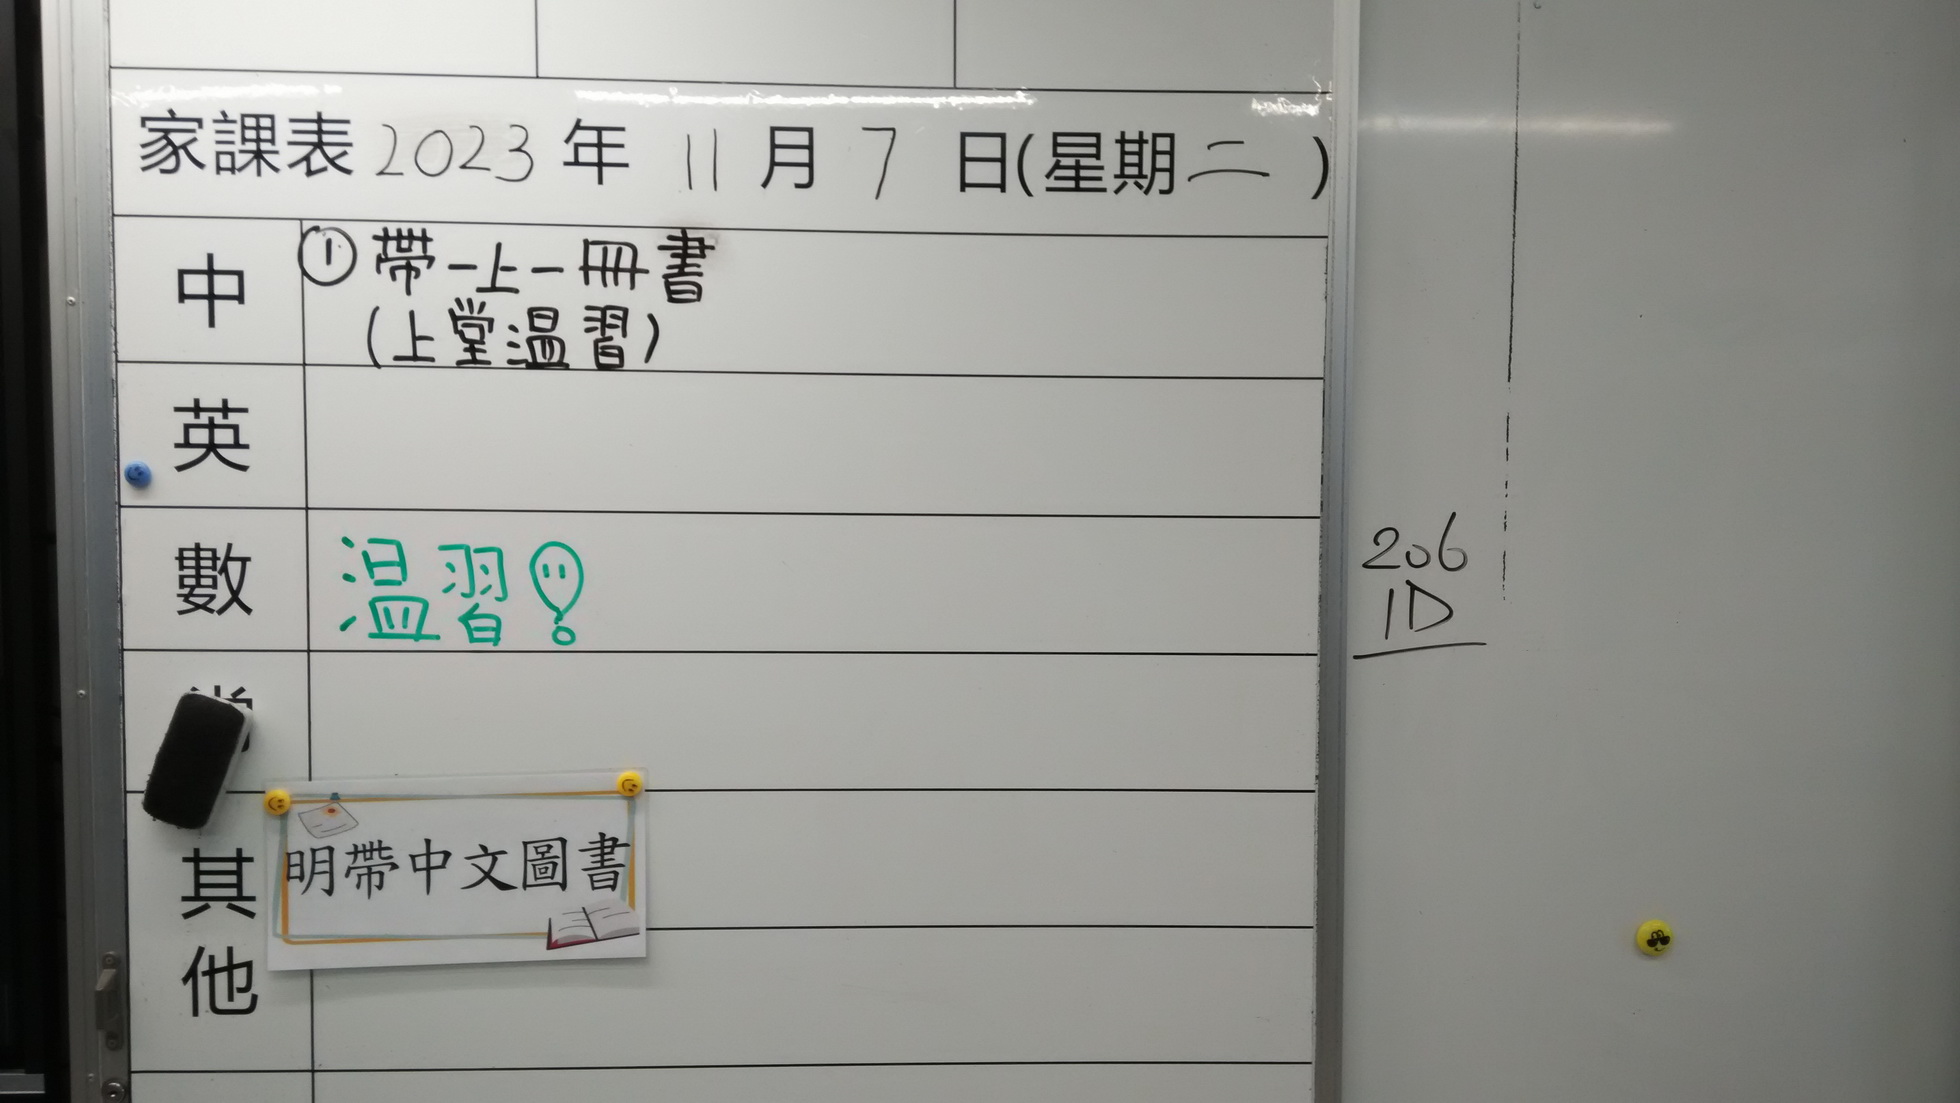 家課表 2023 年 11 月 7 日(星期二)
中
① 帶一上一冊書
(上堂温習)
英
數
温習!
其他
明帶中文圖書
206
1D